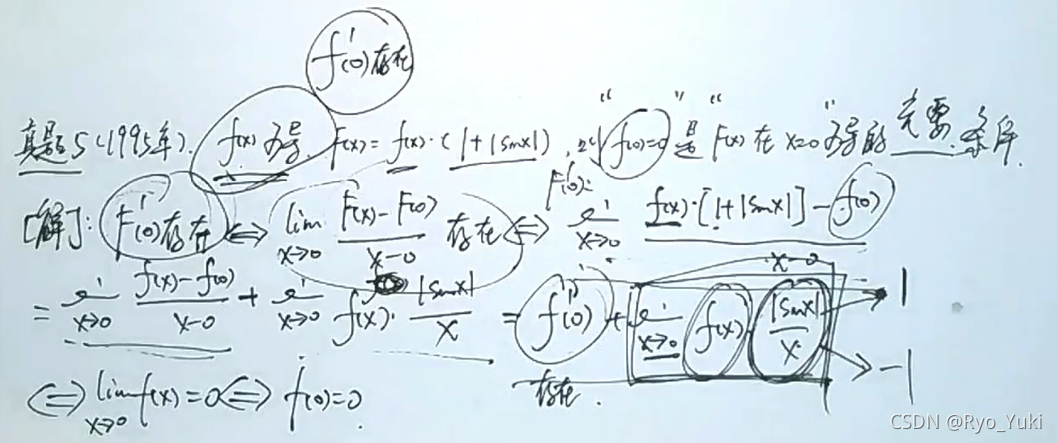 f'(0)存在
真题5(1995年). f(x)可导 F(x)=f(x)·(1+|sinx|), 则"f(0)=0"是"F(x)在x=0"可导的充要条件.
[解]: F'(0)存在 ⟺ lim x→0 F(x)-F(0) / x-0 存在 ⟺ F'(0): lim x→0 f(x)·[1+|sinx|]-f(0) / x-0
= lim x→0 f(x)-f(0) / x-0 + lim x→0 f(x)· |sinx| / x = f'(0) + lim x→0 f(x) |sinx| / x 1 -1
存在.
⟺ lim x→0 f(x)=0 ⟺ f(0)=0.
CSDN @Ryo_Yuki